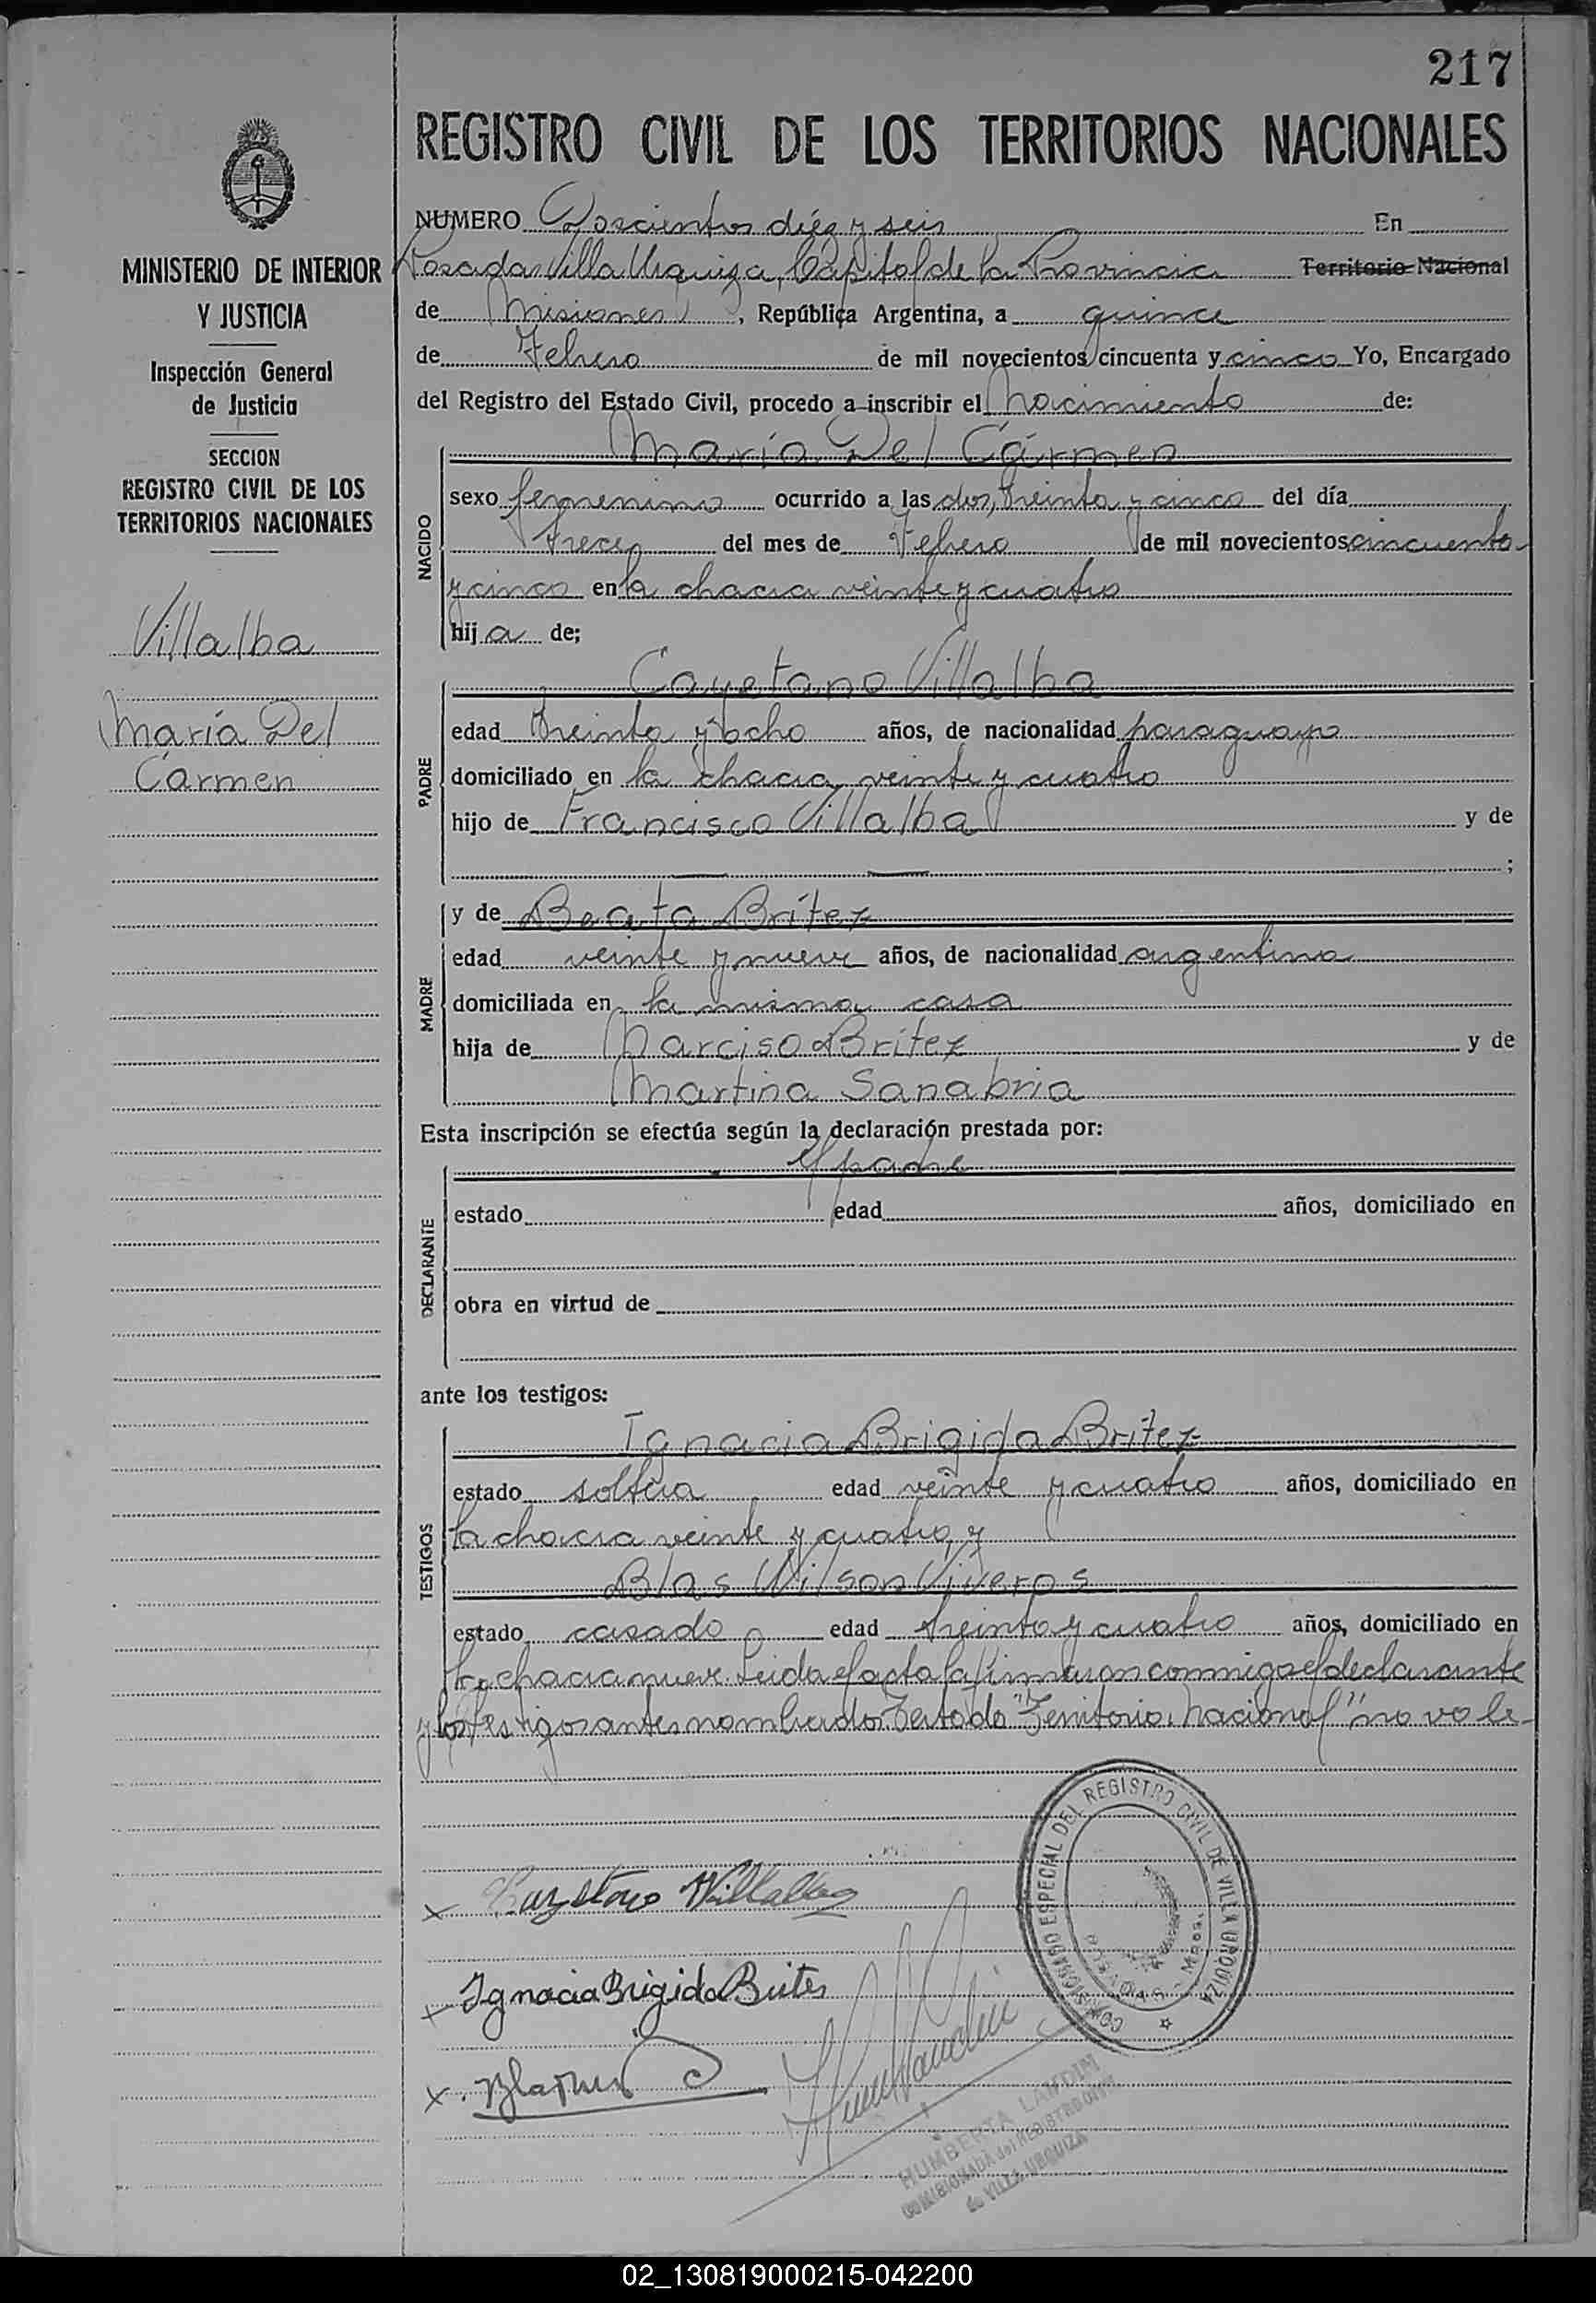 217
REGISTRO CIVIL DE LOS TERRITORIOS NACIONALES
MINISTERIO DE INTERIOR
Y JUSTICIA
Inspección General
de Justicia
SECCION
REGISTRO CIVIL DE LOS
TERRITORIOS NACIONALES
Villalba
María Del
Carmen
NUMERO Doscientos diéz y seis En
Posadas Villa Urquiza, Capital de la Provincia Territorio Nacional
de Misiones, República Argentina, a quince
de Febrero de mil novecientos cincuenta y cinco Yo, Encargado
del Registro del Estado Civil, procedo a inscribir el Nacimiento de:
NACIDO
María Del Cármen
sexo femenino ocurrido a las dos, treinta y cinco del día
trece del mes de Febrero de mil novecientos cincuenta
y cinco en la chacra veinte y cuatro
hij a de;
PADRE
Cayetano Villalba
edad treinta y ocho años, de nacionalidad paraguayo
domiciliado en la chacra veinte y cuatro
hijo de Francisco Villalba y de
;
MADRE
y de Beata Britez
edad veinte y nueve años, de nacionalidad argentina
domiciliada en la misma casa
hija de Narciso Britez y de
Martina Sanabria
Esta inscripción se efectúa según la declaración prestada por:
DECLARANTE
el padre
estado edad años, domiciliado en
obra en virtud de
ante los testigos:
TESTIGOS
Ignacia Brigida Britez
estado soltera edad veinte y cuatro años, domiciliado en
la chacra veinte y cuatro, y
Blas Wilson Viveros
estado casado edad treinta y cuatro años, domiciliado en
la chacra nueve. Leida el acta la firmaron conmigo el declarante
y los testigos antes nombrados. Testado "Territorio Nacional" no vale
COMISIONADO ESPECIAL DEL REGISTRO CIVIL DE VILLA URQUIZA
x Cayetano Villalba
x Ignacia Brigida Brites
x
HUMBERTA LANDINI
COMISIONADA del REGISTRO CIVIL
de VILLA URQUIZA
02_130819000215-042200